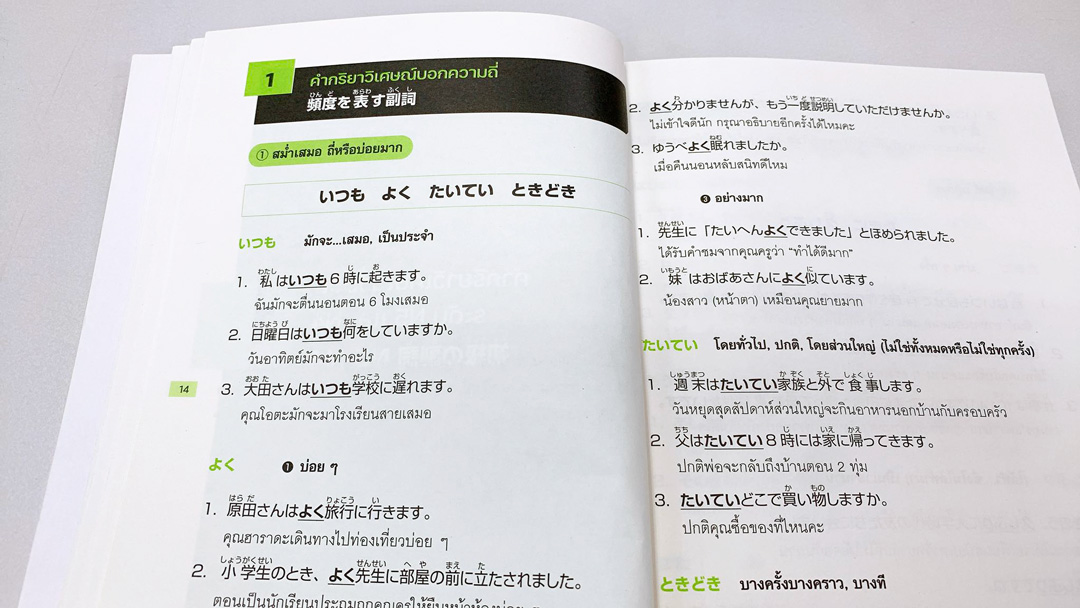 1
คำกริยาวิเศษณ์บอกความถี่
頻度を表す副詞
① สม่ำเสมอ ถี่หรือบ่อยมาก
いつも よく たいてい ときどき
いつも มักจะ...เสมอ, เป็นประจำ
1. 私はいつも6時に起きます。
ฉันมักจะตื่นนอนตอน 6 โมงเสมอ
2. 日曜日はいつも何をしていますか。
วันอาทิตย์มักจะทำอะไร
14
3. 大田さんはいつも学校に遅れます。
คุณโอตะมักจะมาโรงเรียนสายเสมอ
よく ❶ บ่อย ๆ
1. 原田さんはよく旅行に行きます。
คุณฮาราดะเดินทางไปท่องเที่ยวบ่อย ๆ
2. 小学生のとき、よく先生に部屋の前に立たされました。
ตอนเป็นนักเรียนประถมถูกคุณครูให้ยืนหน้าห้อง
2. よく分かりませんが、もう一度説明していただけませんか。
ไม่เข้าใจดีนัก กรุณาอธิบายอีกครั้งได้ไหมคะ
3. ゆうべよく眠れましたか。
เมื่อคืนนอนหลับสนิทดีไหม
❸ อย่างมาก
1. 先生に「たいへんよくできました」とほめられました。
ได้รับคำชมจากคุณครูว่า “ทำได้ดีมาก”
2. 妹はおばあさんによく似ています。
น้องสาว (หน้าตา) เหมือนคุณยายมาก
たいてい โดยทั่วไป, ปกติ, โดยส่วนใหญ่ (ไม่ใช่ทั้งหมดหรือไม่ใช่ทุกครั้ง)
1. 週末はたいてい家族と外で食事します。
วันหยุดสุดสัปดาห์ส่วนใหญ่จะกินอาหารนอกบ้านกับครอบครัว
2. 父はたいてい8時には家に帰ってきます。
ปกติพ่อจะกลับถึงบ้านตอน 2 ทุ่ม
3. たいていどこで買い物しますか。
ปกติคุณซื้อของที่ไหนคะ
ときどき บางครั้งบางคราว, บางที